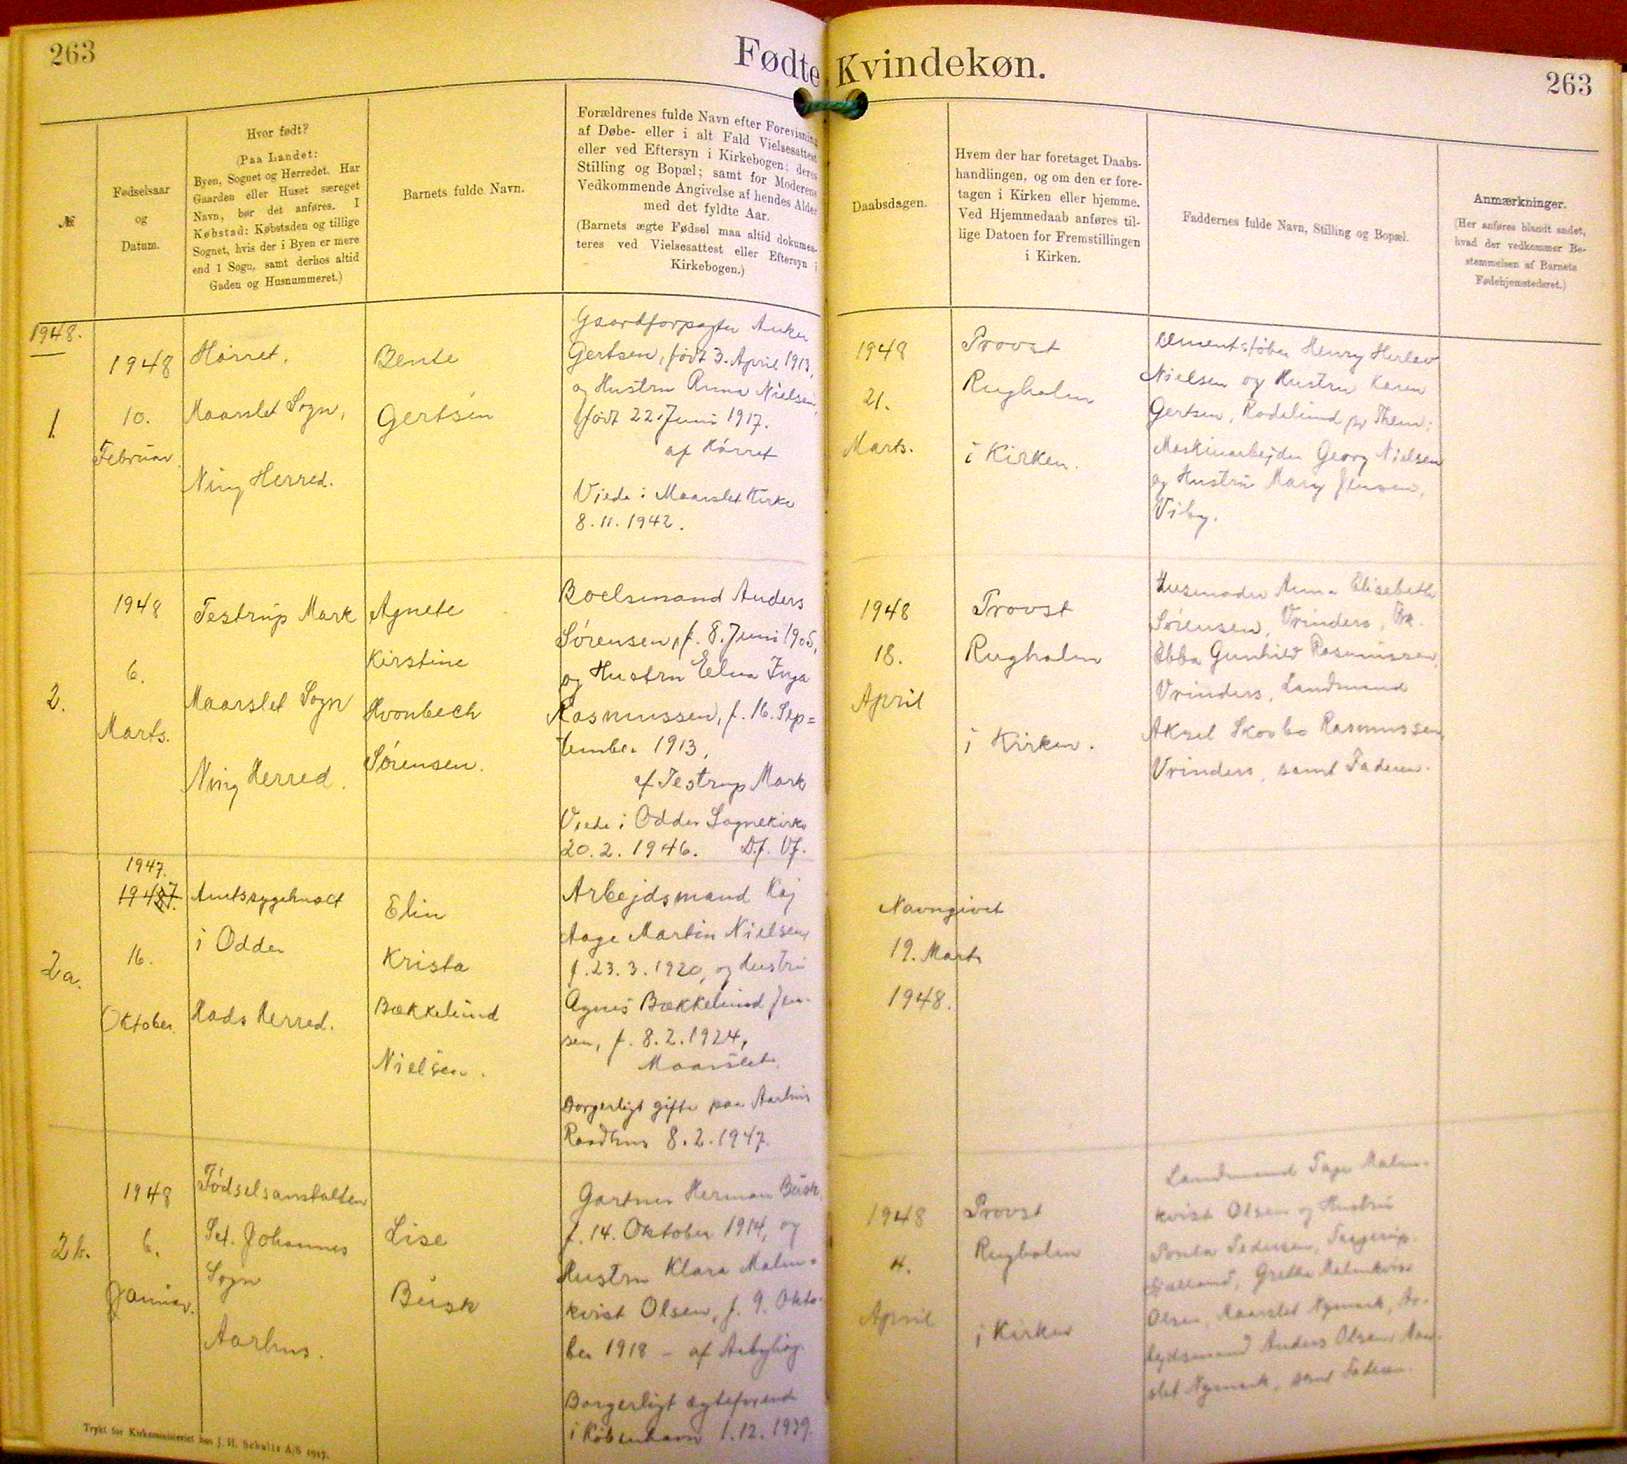 263
Fødte Kvindekøn.
263
№
Fødselsaar
og
Datum.
Hvor født?
(Paa Landet:
Byen, Sognet og Herredet. Har
Gaarden eller Huset særeget
Navn, bør det anføres. I
Købstad: Købstaden og tillige
Sognet, hvis der i Byen er mere
end 1 Sogn, samt derhos altid
Gaden og Husnummeret.)
Barnets fulde Navn.
Forældrenes fulde Navn efter Forevisning
af Døbe- eller i alt Fald Vielsesattest
eller ved Eftersyn i Kirkebogen; deres
Stilling og Bopæl; samt for Moderens
Vedkommende Angivelse af hendes Alder
med det fyldte Aar.
(Barnets ægte Fødsel maa altid dokumen-
teres ved Vielsesattest eller Eftersyn i
Kirkebogen.)
Daabsdagen.
Hvem der har foretaget Daabs-
handlingen, og om den er fore-
tagen i Kirken eller hjemme.
Ved Hjemmedaab anføres til-
lige Datoen for Fremstillingen
i Kirken.
Faddernes fulde Navn, Stilling og Bopæl.
Anmærkninger.
(Her anføres blandt andet,
hvad der vedkommer Be-
stemmelsen af Barnets
Fødehjemstederet.)
1948.
1.
1948
10.
Februar.
Hørret.
Maarslet Sogn,
Ning Herred.
Bente
Gertsen
Gaardforpagter Anker
Gertsen, født 3. April 1913,
og Hustru Anna Nielsen,
født 22. Juni 1917.
af Hørret
Viede i Maarslet Kirke
8.11.1942.
1948
21.
Marts.
Provst
Rugholm
i Kirken.
Cementstøber Henry Herlev
Nielsen og Hustru Karen
Gertsen, Rodelund pr Them;
Maskinarbejder Georg Nielsen
og Hustru Mary Jensen,
Viby.
2.
1948
6.
Marts.
Testrup Mark
Maarslet Sogn
Ning Herred.
Agnete
Kirstine
Hvonbech
Sørensen.
Boelsmand Anders
Sørensen, f. 8. Juni 1905,
og Hustru Elna Inga
Rasmussen, f. 16. Sep=
tember 1913,
af Testrup Mark
Viede i Odder Sognekirke
20.2.1946. Df. Vf.
1948
18.
April
Provst
Rugholm
i Kirken.
Husmoder Anna Elisabeth
Sørensen, Vrinders,
Ebba Gunhild Rasmussen,
Vrinders, Landmand
Aksel Skovbo Rasmussen
Vrinders, samt Faderen.
2a.
1947.
16.
Oktober.
Amtssygehuset
i Odder
Hads Herred.
Elin
Krista
Bækkelund
Nielsen.
Arbejdsmand Kaj
Aage Martin Nielsen,
f. 23.3.1920, og Hustru
Agnes Bækkelund Jen-
sen, f. 8.2.1924,
Maarslet.
Borgerligt gifte paa Aarhus
Raadhus 8.2.1947.
Navngivet
19. Marts
1948.
2b.
1948
6.
Januar.
Fødselsanstalten
Sct. Johannes
Sogn
Aarhus.
Lise
Busk
Gartner Herman Busk,
f. 14. Oktober 1914, og
Hustru Klara Malm=
kvist Olsen, f. 9. Okto-
ber 1918 – af Aabyhøj
Borgerligt ægteforende
i København 1.12.1939.
1948
4.
April
Provst
Rugholm
i Kirken
Landmand Tage Malm-
kvist Olsen og Hustru
Pedersen,
Sjælland, Grethe Malmkvist
Olsen, Maarslet Nymark, Ar-
bejdsmand Anders Olsen Maar-
slet Nymark, samt Faderen.
Trykt for Kirkeministeriet hos J. H. Schultz A/S 1917.